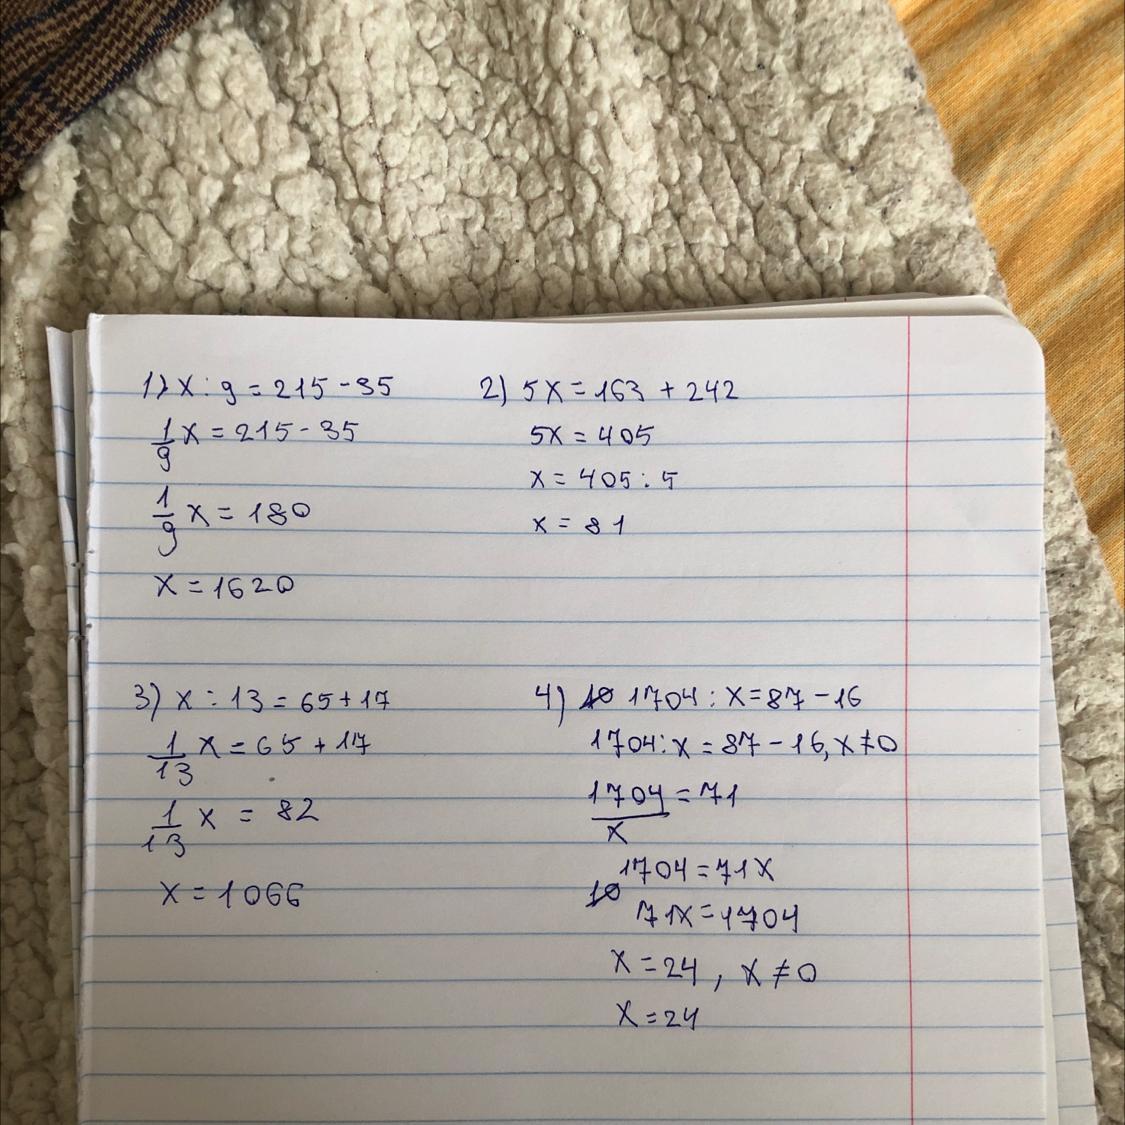 1) x : 9 = 215 - 35
1/9 x = 215 - 35
1/9 x = 180
x = 1620
2) 5x = 163 + 242
5x = 405
x = 405 : 5
x = 81
3) x : 13 = 65 + 17
1/13 x = 65 + 17
1/13 x = 82
x = 1066
4) 1704 : x = 87 - 16
1704 : x = 87 - 16, x ≠ 0
1704/x = 71
1704 = 71x
71x = 1704
x = 24, x ≠ 0
x = 24